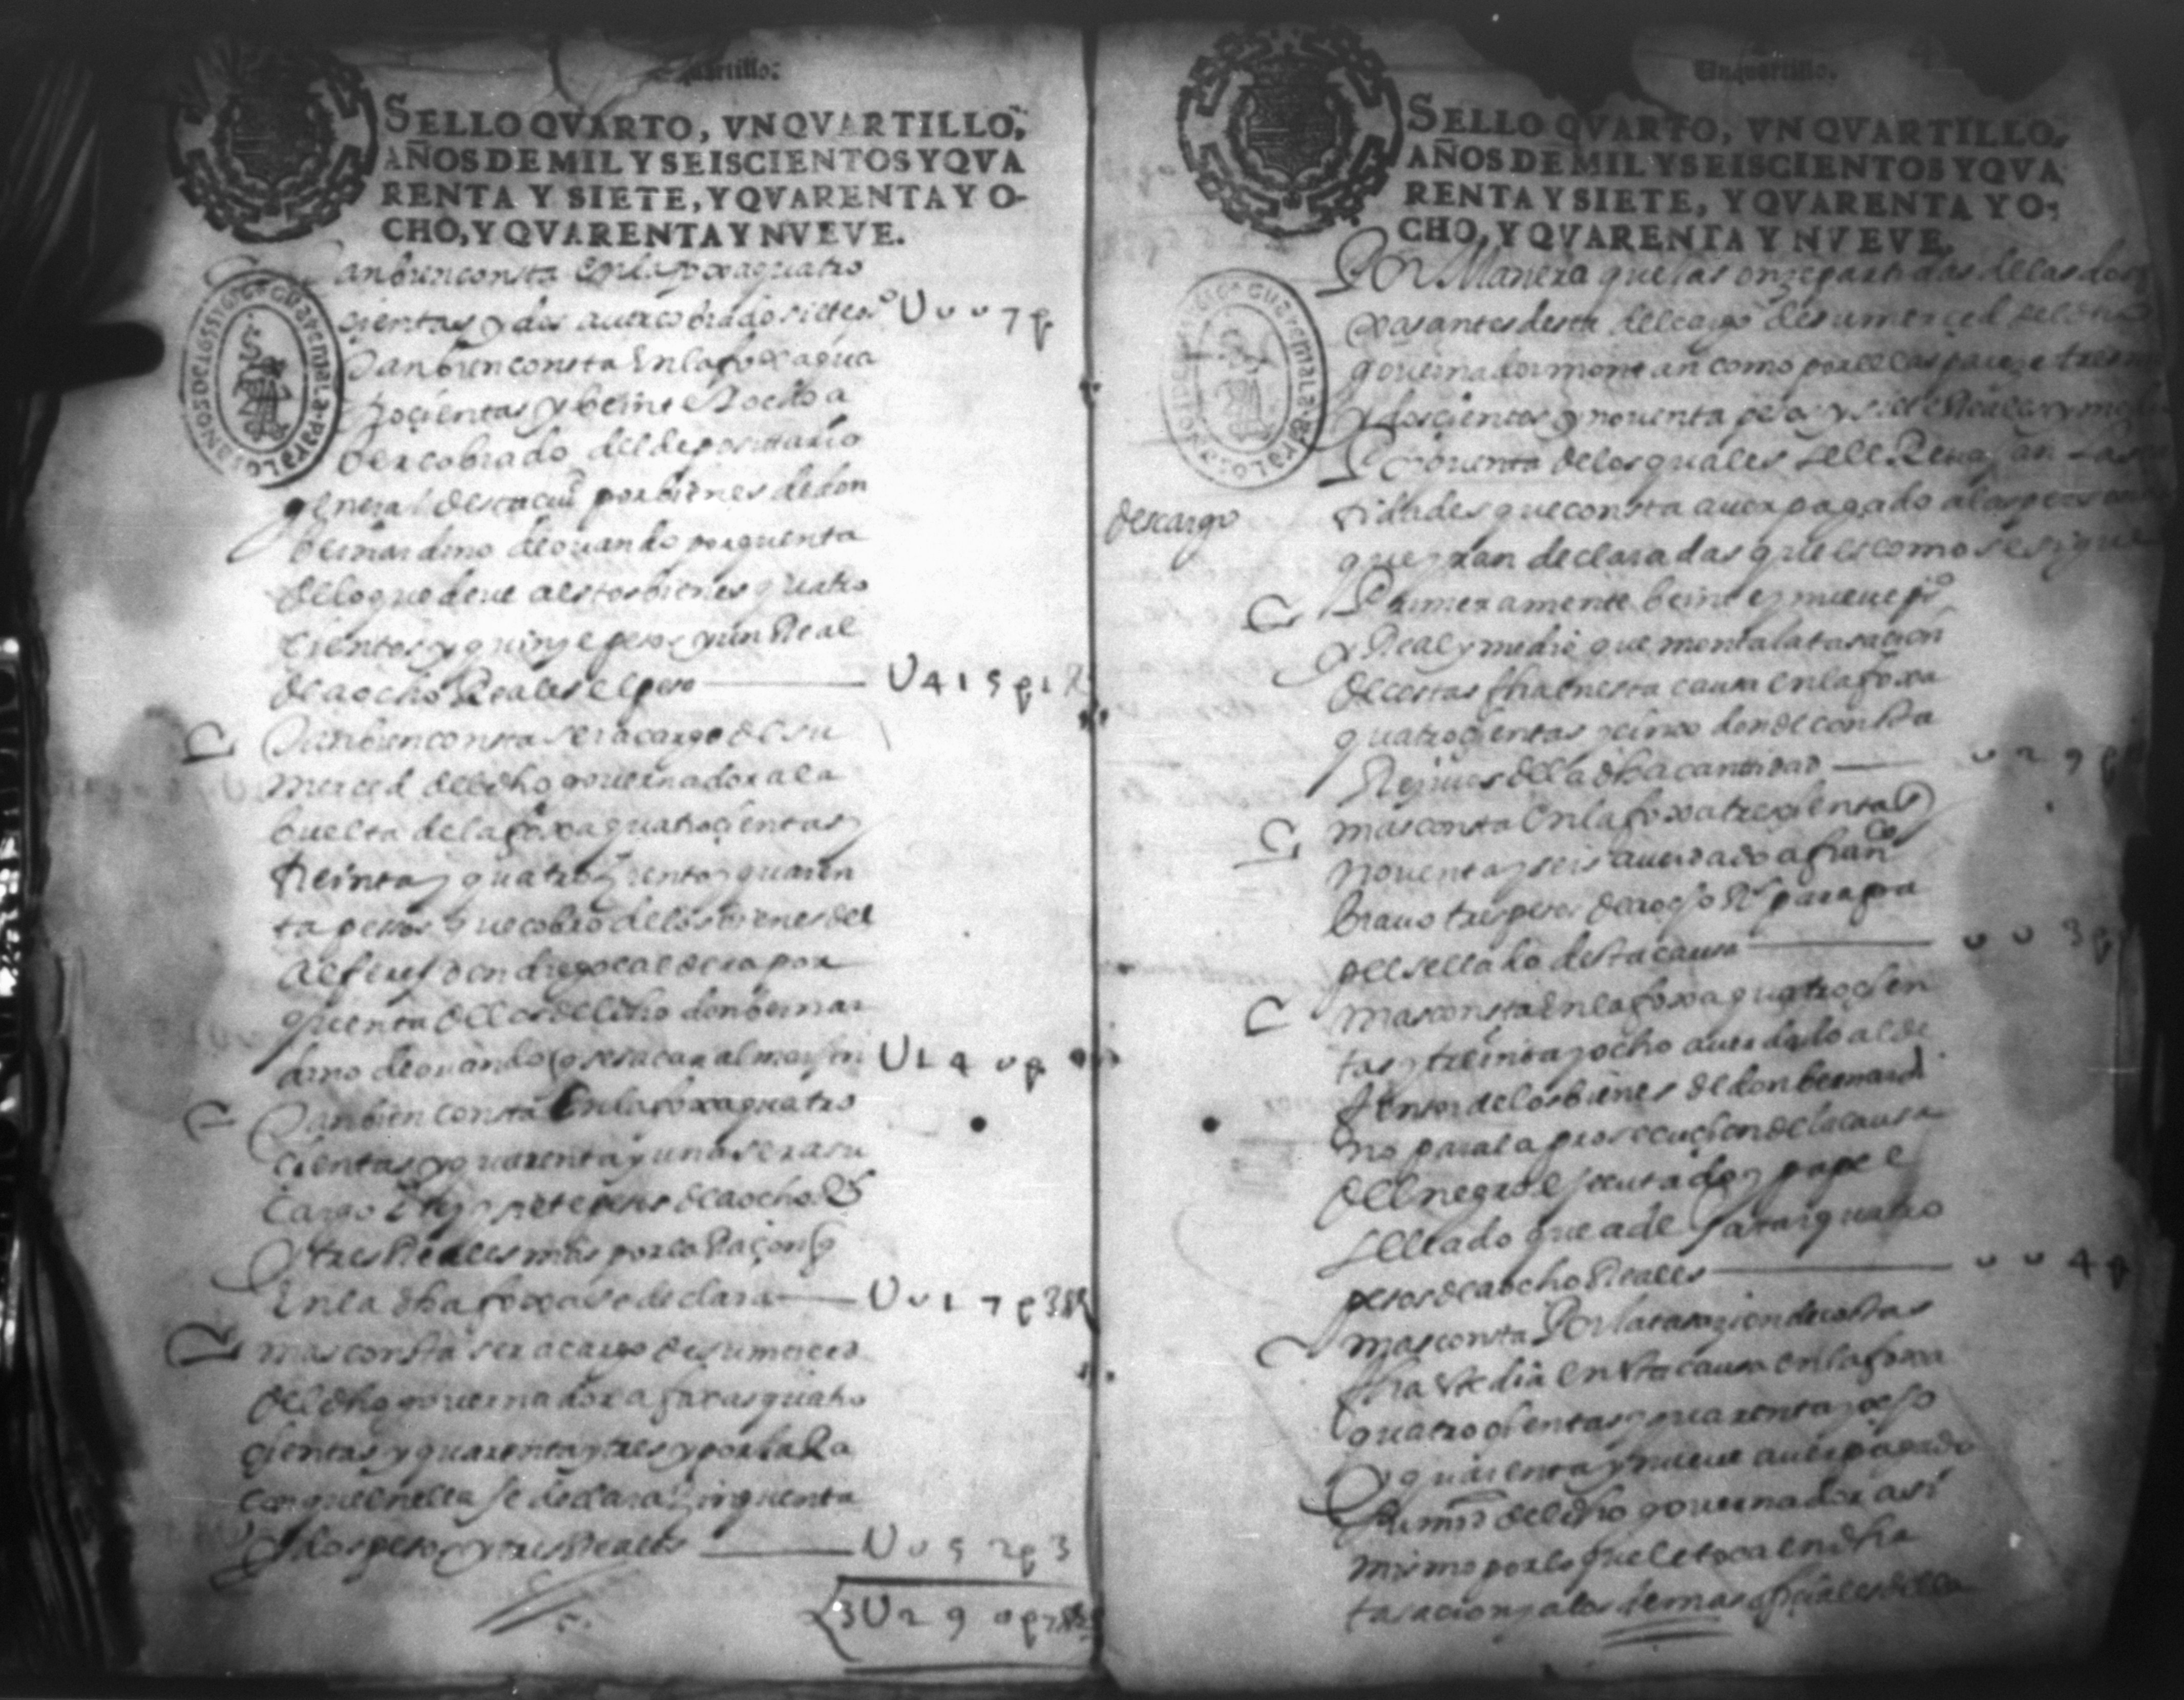 quartillo.
SELLO QVARTO, VN QVARTILLO,
AÑOS DE MIL Y SEISCIENTOS Y QVA
RENTA Y SIETE, Y QVARENTA Y O-
CHO, Y QVARENTA Y NVEVE.
Tanbien consta en la foxa quatro
çientas y dos auer cobrado siete ps U007 p
Tanbien consta en la foxa qua
troçientas y beinte y ocho a
ber cobrado del depositario
general desta ciud por bienes de don
bernardino de ouando por quenta
de lo que deue a estos bienes quatro
cientos y quinze pesos y un Real
de a ocho Reales el peso U415 p 1 R
Tanbien consta ser a cargo de su
merced del dho gouernador a la
buelta de la foxa quatroçientas y
treinta y quatro çiento y quaren
ta pesos que cobro de los bienes del
alferes don diego caldera por
quenta de los del dho don bernar
dino de ouando q se saca al marjen U140 p
Tanbien consta en la foxa quatro
cientas y quarenta y una ser a su
cargo diez y siete pesos de a ocho Rs
y tres Reales mas por la Raçon q
en la dha foxa se declara U017 p 3 R
mas consta ser a cargo de su merced
del dho gouernador a foxas quatro
çientas y quarenta y tres y por la Ra
çon que en ella se declara çinquenta
y dos pesos y tres Reales U052 p 3
3U290 p 7 R
Un quartillo.
SELLO QVARTO, VN QVARTILLO,
AÑOS DE MIL Y SEISCIENTOS Y QVA
RENTA Y SIETE, Y QVARENTA Y O-
CHO, Y QVARENTA Y NVEVE.
Por Manera que las onze partidas de las dos fo
xas antes desta del cargo de su merced del dho
gouernador montan como por ellas pareze tres mil
y dosçientos y nouenta pesos y siete Reales y medio
descargo
Por quenta de los quales se le Reuajan las can
tidades que consta auer pagado a las personas
que yran declaradas que es como se sigue
Primeramente beinte y nueue ps
y Real y medio que monta la tasacion
de costas fha en esta causa en la foxa
quatroçientas y cinco donde consta
Reçiuos de la dha cantidad U29 p
mas consta en la foxa tresçientas y
nouenta y seis auer dado a franco
brauo tres pesos de a ocho Rs para pa
pel sellado desta causa UU3 p
mas consta en la foxa quatroçien
tas y treinta y ocho auer dado al de
fensor de los bienes de don bernardi
no para la prosecuçion de la causa
del negro executado y papel
sellado que a de gastar quatro
pesos de a ocho Reales UU4 p
mas consta Por la tasazion de costas
fha este dia en esta causa en la foxa
quatroçientas y quarenta y ocho
y quarenta y nueue auer pagado
su md del dho gouernador asi
mismo por lo que le toca en dha
tasacion y a los demas ofiçiales della